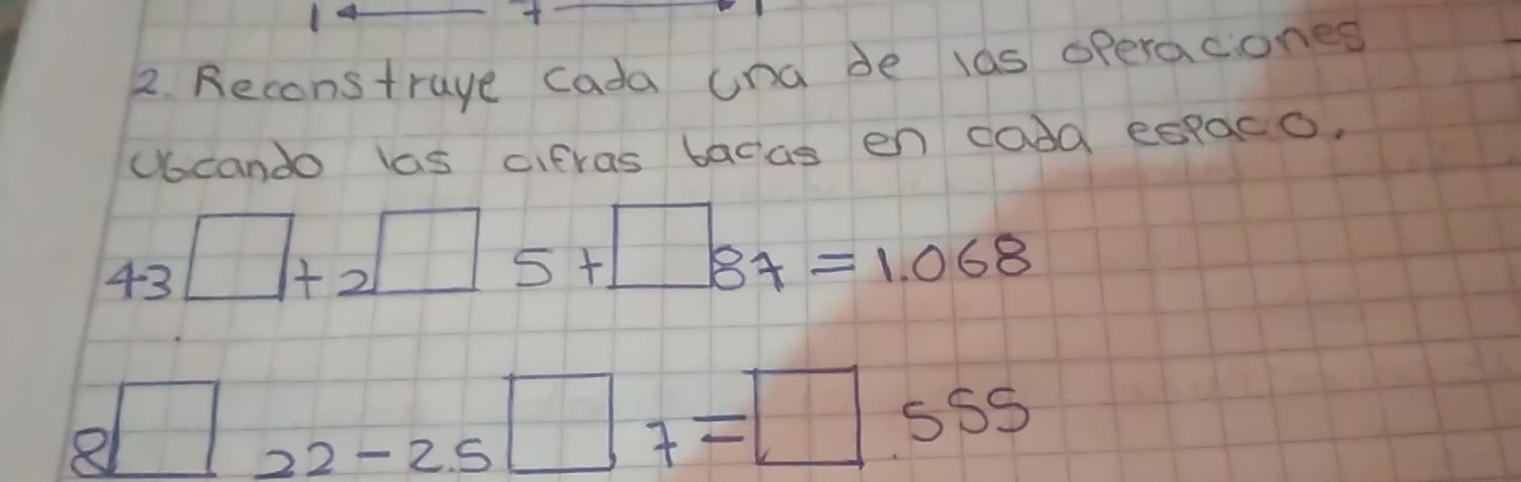 1 ← 7 → 1
2. Reconstruye cada una de las operaciones
Ubcando las cifras bacias en cada espacio.
43□ + 2□5 + □87 = 1.068
8□22 - 2.5□7 = □.555